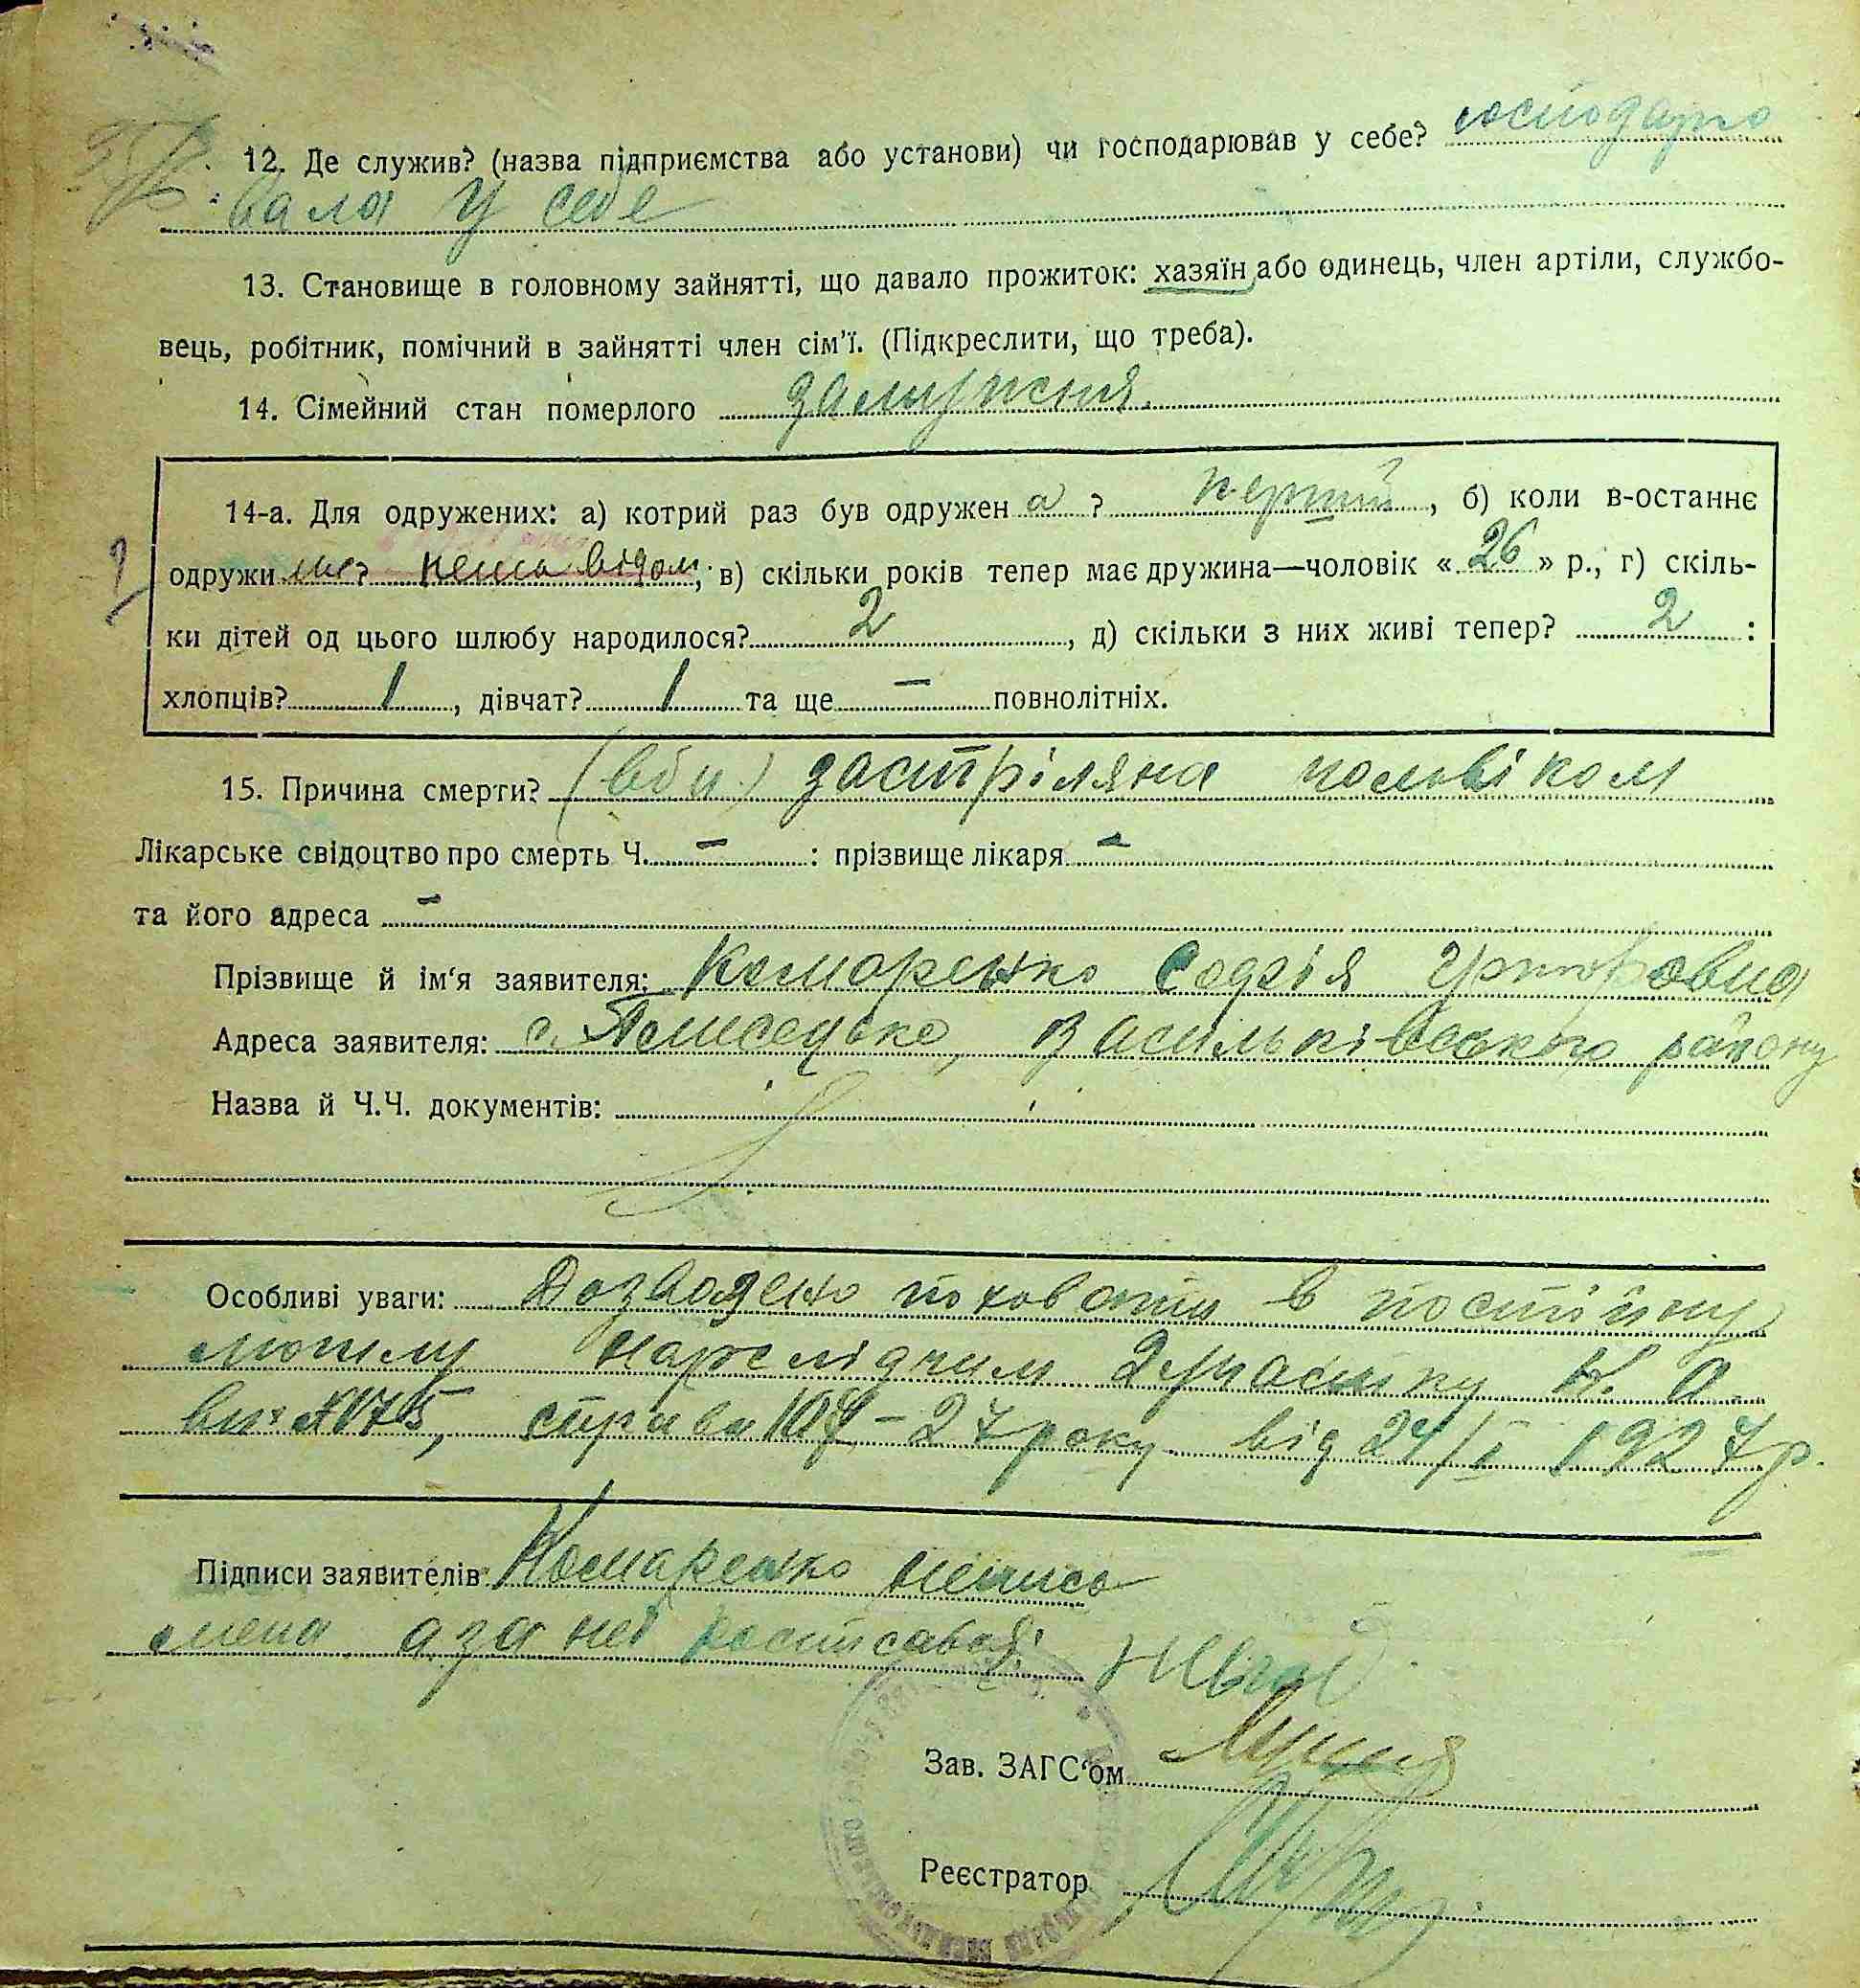 12. Де служив? (назва підприємства або установи) чи господарював у себе? господарю
вала у себе
13. Становище в головному зайнятті, що давало прожиток: хазяїн або одинець, член артіли, службо-
вець, робітник, помічний в зайнятті член сім'ї. (Підкреслити, що треба).
14. Сімейний стан померлого замужня.
14-а. Для одружених: а) котрий раз був одружен а ? перший, б) коли в-останнє
одружи лись невідом, в) скільки років тепер має дружина—чоловік « 26 » р., г) скіль-
ки дітей од цього шлюбу народилося? 2, д) скільки з них живі тепер? 2 :
хлопців? 1, дівчат? 1 та ще — повнолітніх.
15. Причина смерти? (вби.) застріляна чоловіком
Лікарське свідоцтво про смерть Ч. — : прізвище лікаря —
та його адреса —
Прізвище й ім'я заявителя: Комаренко
Адреса заявителя: с. Васильківського району
Назва й Ч.Ч. документів:
Особливі уваги: Дозволено поховати в постійну
могилу Нарслідчим 2 участку
справа 108 - 27 року від 24/I 1927 р.
Підписи заявителів: Комаренко неписьменна
а за неї
Зав. ЗАГС'ом
Реєстратор